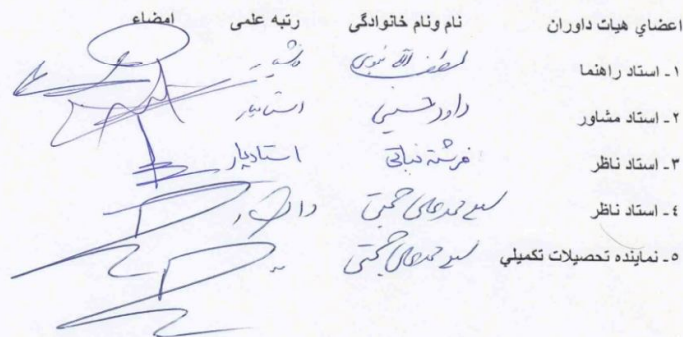 اعضاي هيات داوران نام ونام خانوادگی رتبه علمی امضاء
١- استاد راهنما لطف الله نبوی دانشیار
٢- استاد مشاور داود حسینی استادیار
٣- استاد ناظر فرشته نباتی استادیار
٤- استاد ناظر سید محمدعلی حجتی دانشیار
٥- نماينده تحصيلات تكميلي سید محمدعلی حجتی